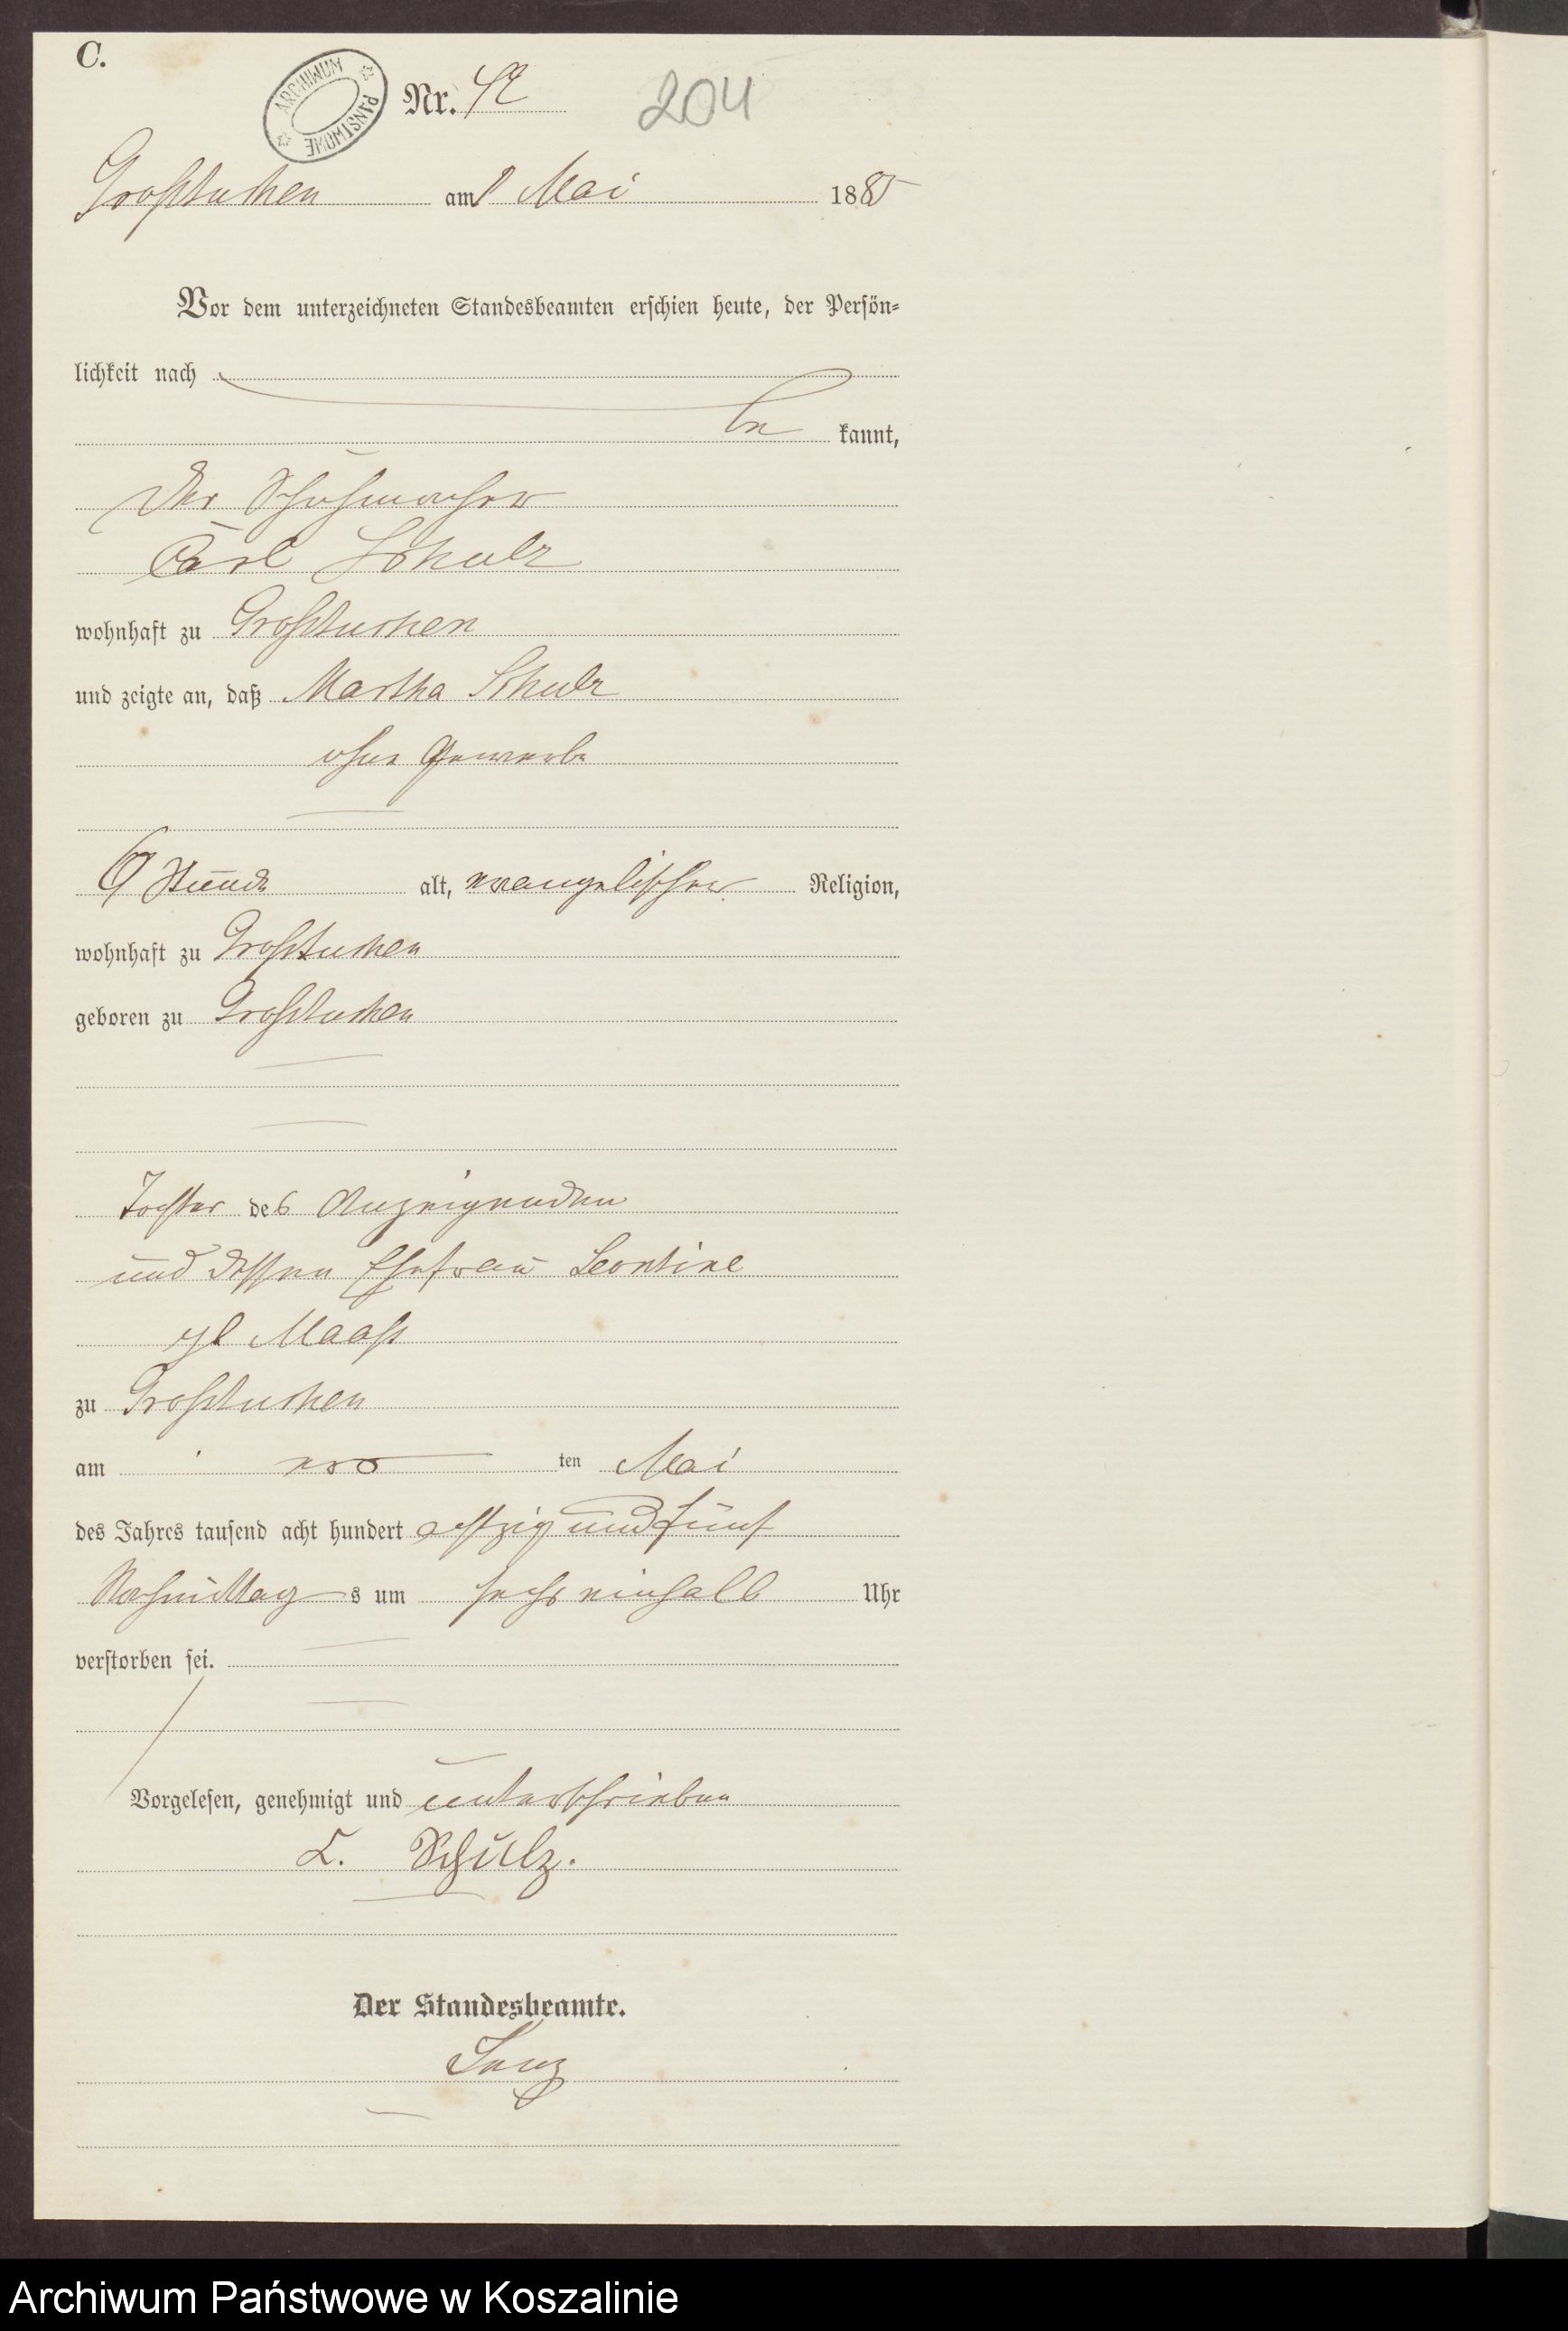 C.
ARCHIWUM PAŃSTWOWE
Nr. 42
204
Großtuchen am 1 Mai 1885
Vor dem unterzeichneten Standesbeamten erschien heute, der Persön-
lichkeit nach
be kannt,
der Schuhmacher
Carl Schulz
wohnhaft zu Großtuchen
und zeigte an, daß Martha Schulz
ohne Gewerbe
Stunde alt, evangelischer Religion,
wohnhaft zu Großtuchen
geboren zu Großtuchen
Tochter des Anzeigenden
und dessen Ehefrau Leontine
Maaß
zu Großtuchen
am ers ten Mai
des Jahres tausend acht hundert achtzig und fünf
Nachmittag s um sechs einhalb Uhr
verstorben sei.
Vorgelesen, genehmigt und unterschrieben
C. Schulz.
Der Standesbeamte.
Archiwum Państwowe w Koszalinie